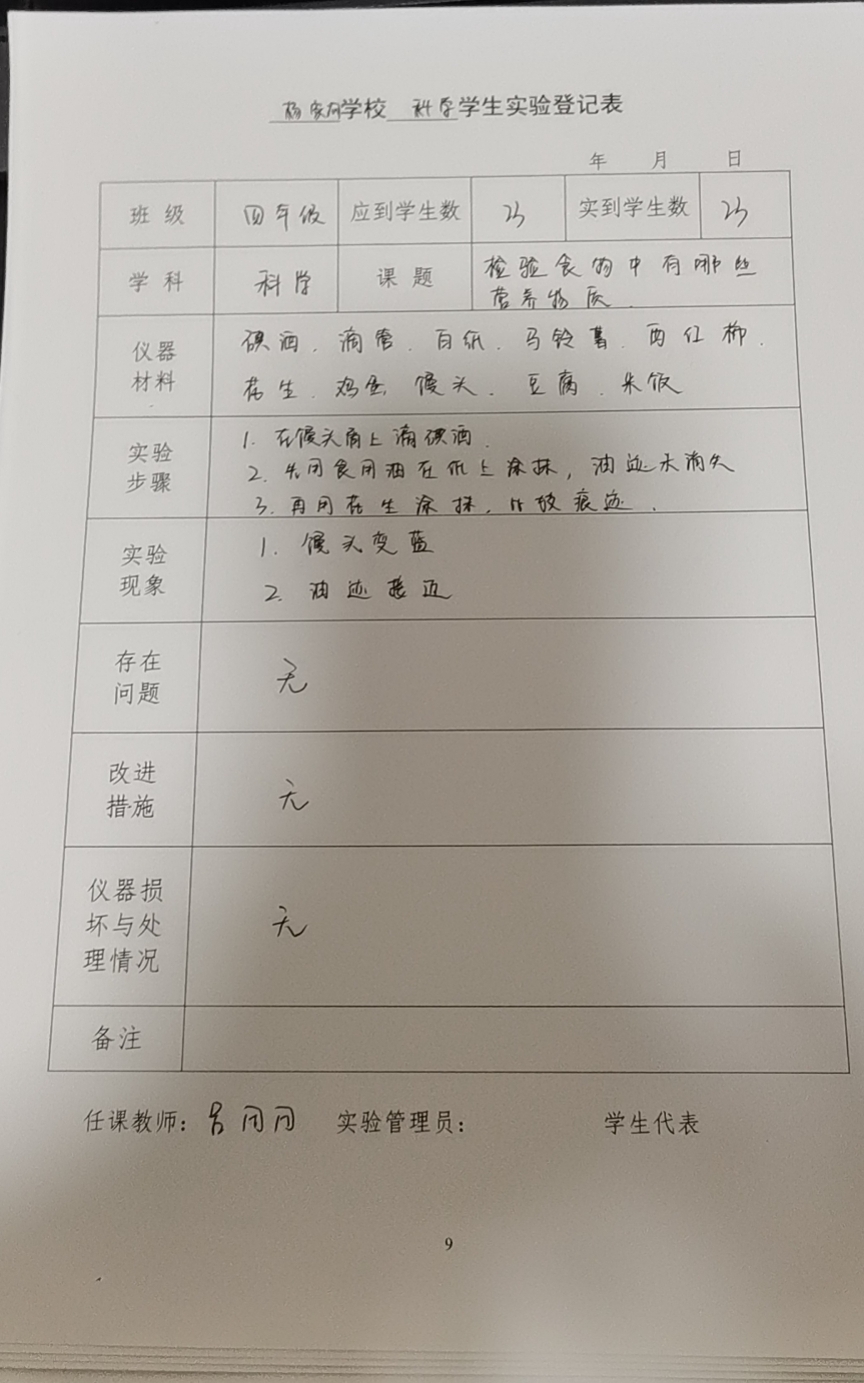 学校 科学学生实验登记表
年 月 日
班级 四年级 应到学生数 23 实到学生数 23
学科 科学 课题 检验食物中有哪些
营养物质.
仪器
材料
碘酒. 滴管. 白纸. 马铃薯. 西红柿.
花生. 鸡蛋 馒头. 豆腐. 米饭
实验
步骤
1. 在馒头角上滴碘酒.
2. 先用食用油在纸上涂抹, 油迹未消失
3. 再用花生涂抹, 比较痕迹.
实验
现象
1. 馒头变蓝
2. 油迹接近
存在
问题
无
改进
措施
无
仪器损
坏与处
理情况
无
备注
任课教师: 实验管理员: 学生代表
9